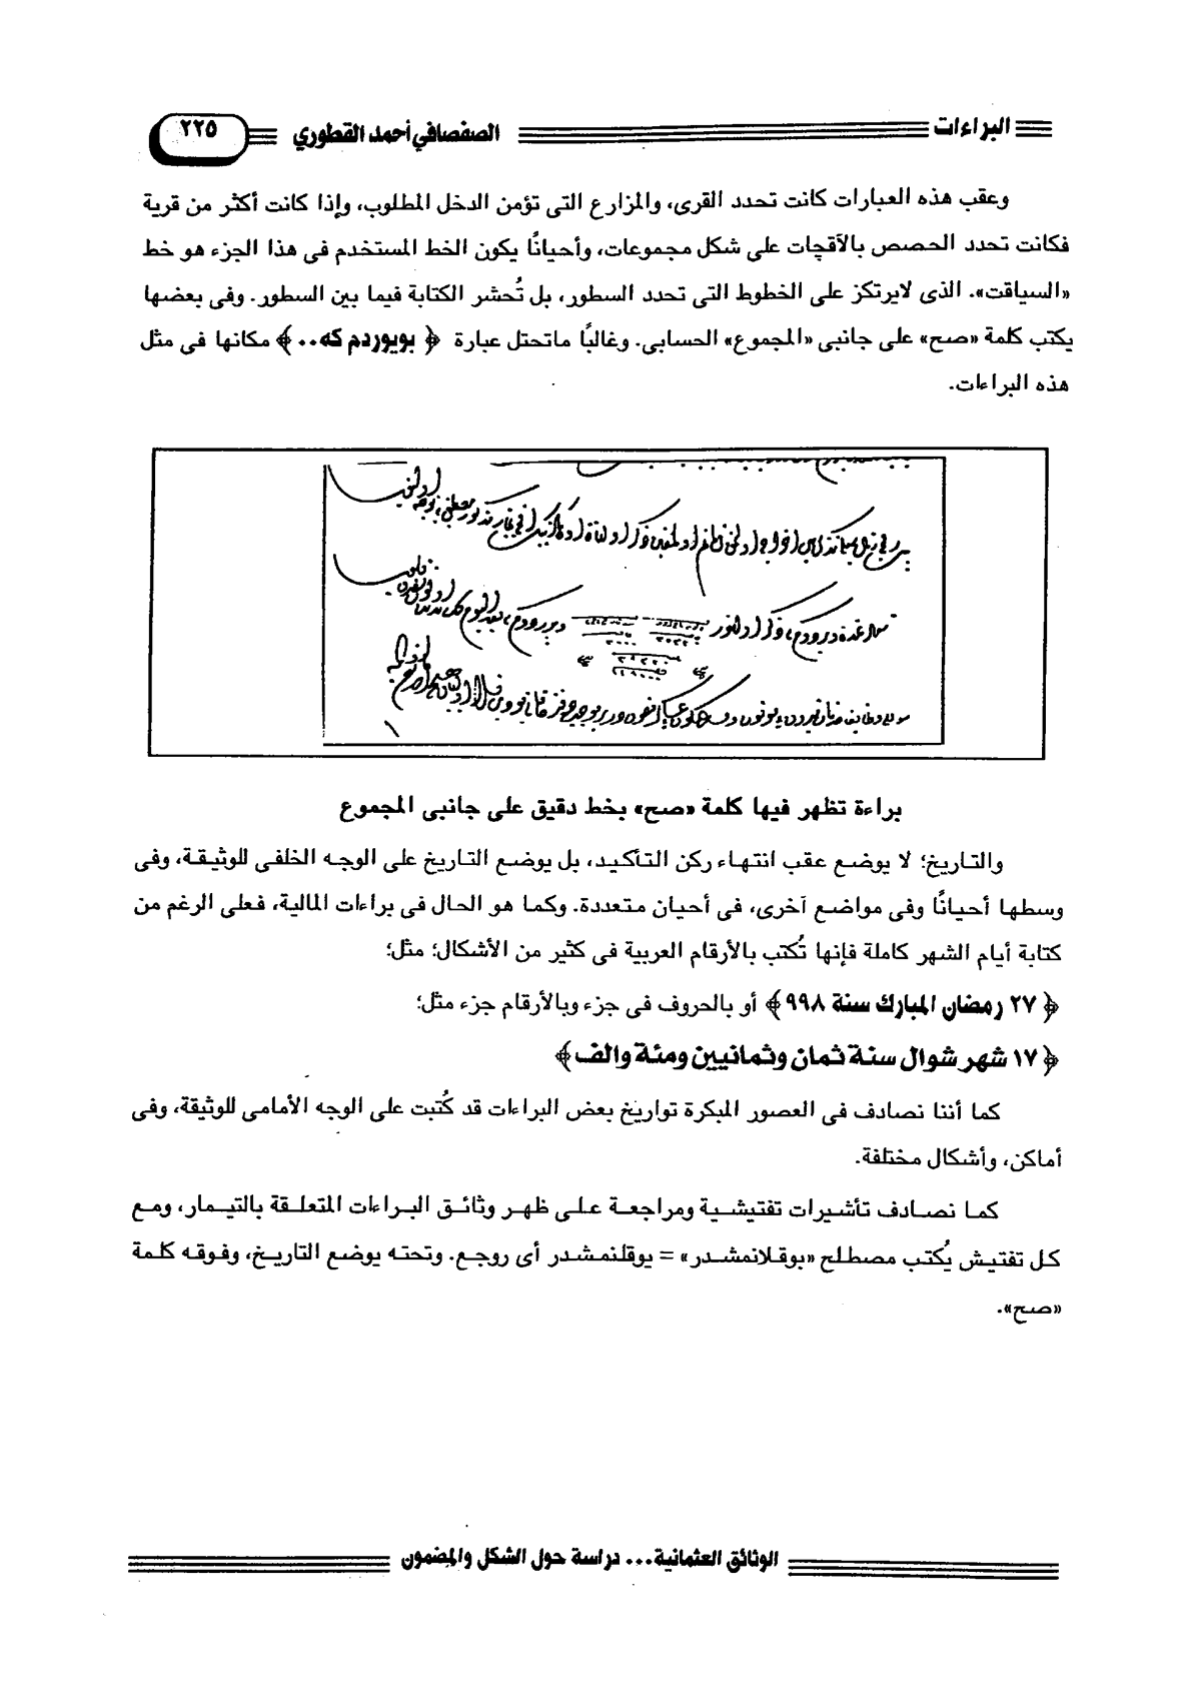 البراءات
الصفصافي أحمد القطوري
٢٢٥
وعقب هذه العبارات كانت تحدد القرى، والمزارع التى تؤمن الدخل المطلوب، وإذا كانت أكثر من قرية
فكانت تحدد الحصص بالآقچات على شكل مجموعات، وأحيانًا يكون الخط المستخدم فى هذا الجزء هو خط
«السياقت». الذى لايرتكز على الخطوط التى تحدد السطور، بل تُحشر الكتابة فيما بين السطور. وفى بعضها
يكتب كلمة «صح» على جانبى «المجموع» الحسابى. وغالبًا ماتحتل عبارة ﴿ بويوردم كه..﴾ مكانها فى مثل
هذه البراءات.
براءة تظهر فيها كلمة «صح» بخط دقيق على جانبى المجموع
والتاريخ؛ لا يوضع عقب انتهاء ركن التأكيد، بل يوضع التاريخ على الوجه الخلفى للوثيقة، وفى
وسطها أحيانًا وفى مواضع آخرى، فى أحيان متعددة. وكما هو الحال فى براءات المالية، فعلى الرغم من
كتابة أيام الشهر كاملة فإنها تُكتب بالأرقام العربية فى كثير من الأشكال؛ مثل؛
﴿ ٢٧ رمضان المبارك سنة ٩٩٨﴾ أو بالحروف فى جزء وبالأرقام جزء مثل؛
﴿ ١٧ شهر شوال سنة ثمان وثمانيين ومئة والف﴾
كما أننا نصادف فى العصور المبكرة تواريخ بعض البراءات قد كُتبت على الوجه الأمامى للوثيقة، وفى
أماكن، وأشكال مختلفة.
كما نصادف تأشيرات تفتيشية ومراجعة على ظهر وثائق البراءات المتعلقة بالتيمار، ومع
كل تفتيش يُكتب مصطلح «بوقلانمشدر» = يوقلنمشدر أى روجع. وتحته يوضع التاريخ، وفوقه كلمة
«صح».
الوثائق العثمانية... دراسة حول الشكل والمضمون